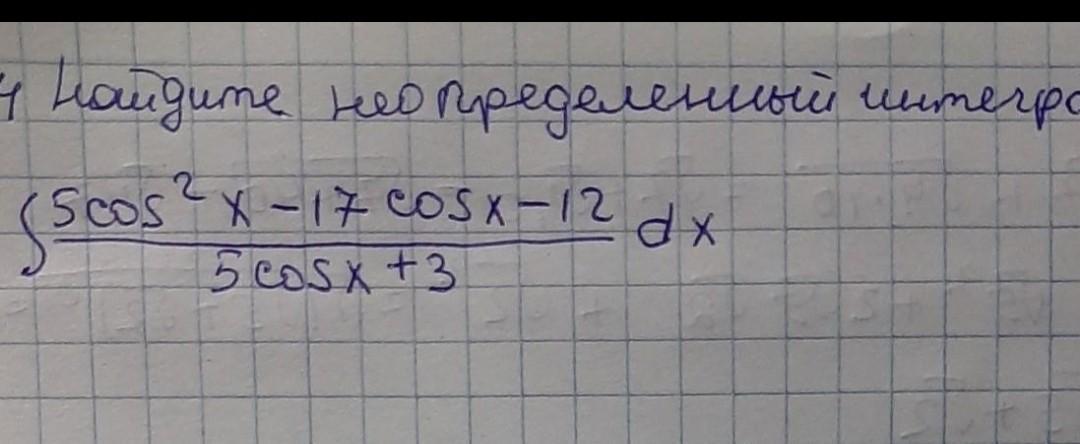 Найдите неопределенный интегра
∫ 5cos² x - 17 cosx - 12 / 5cosx + 3 dx